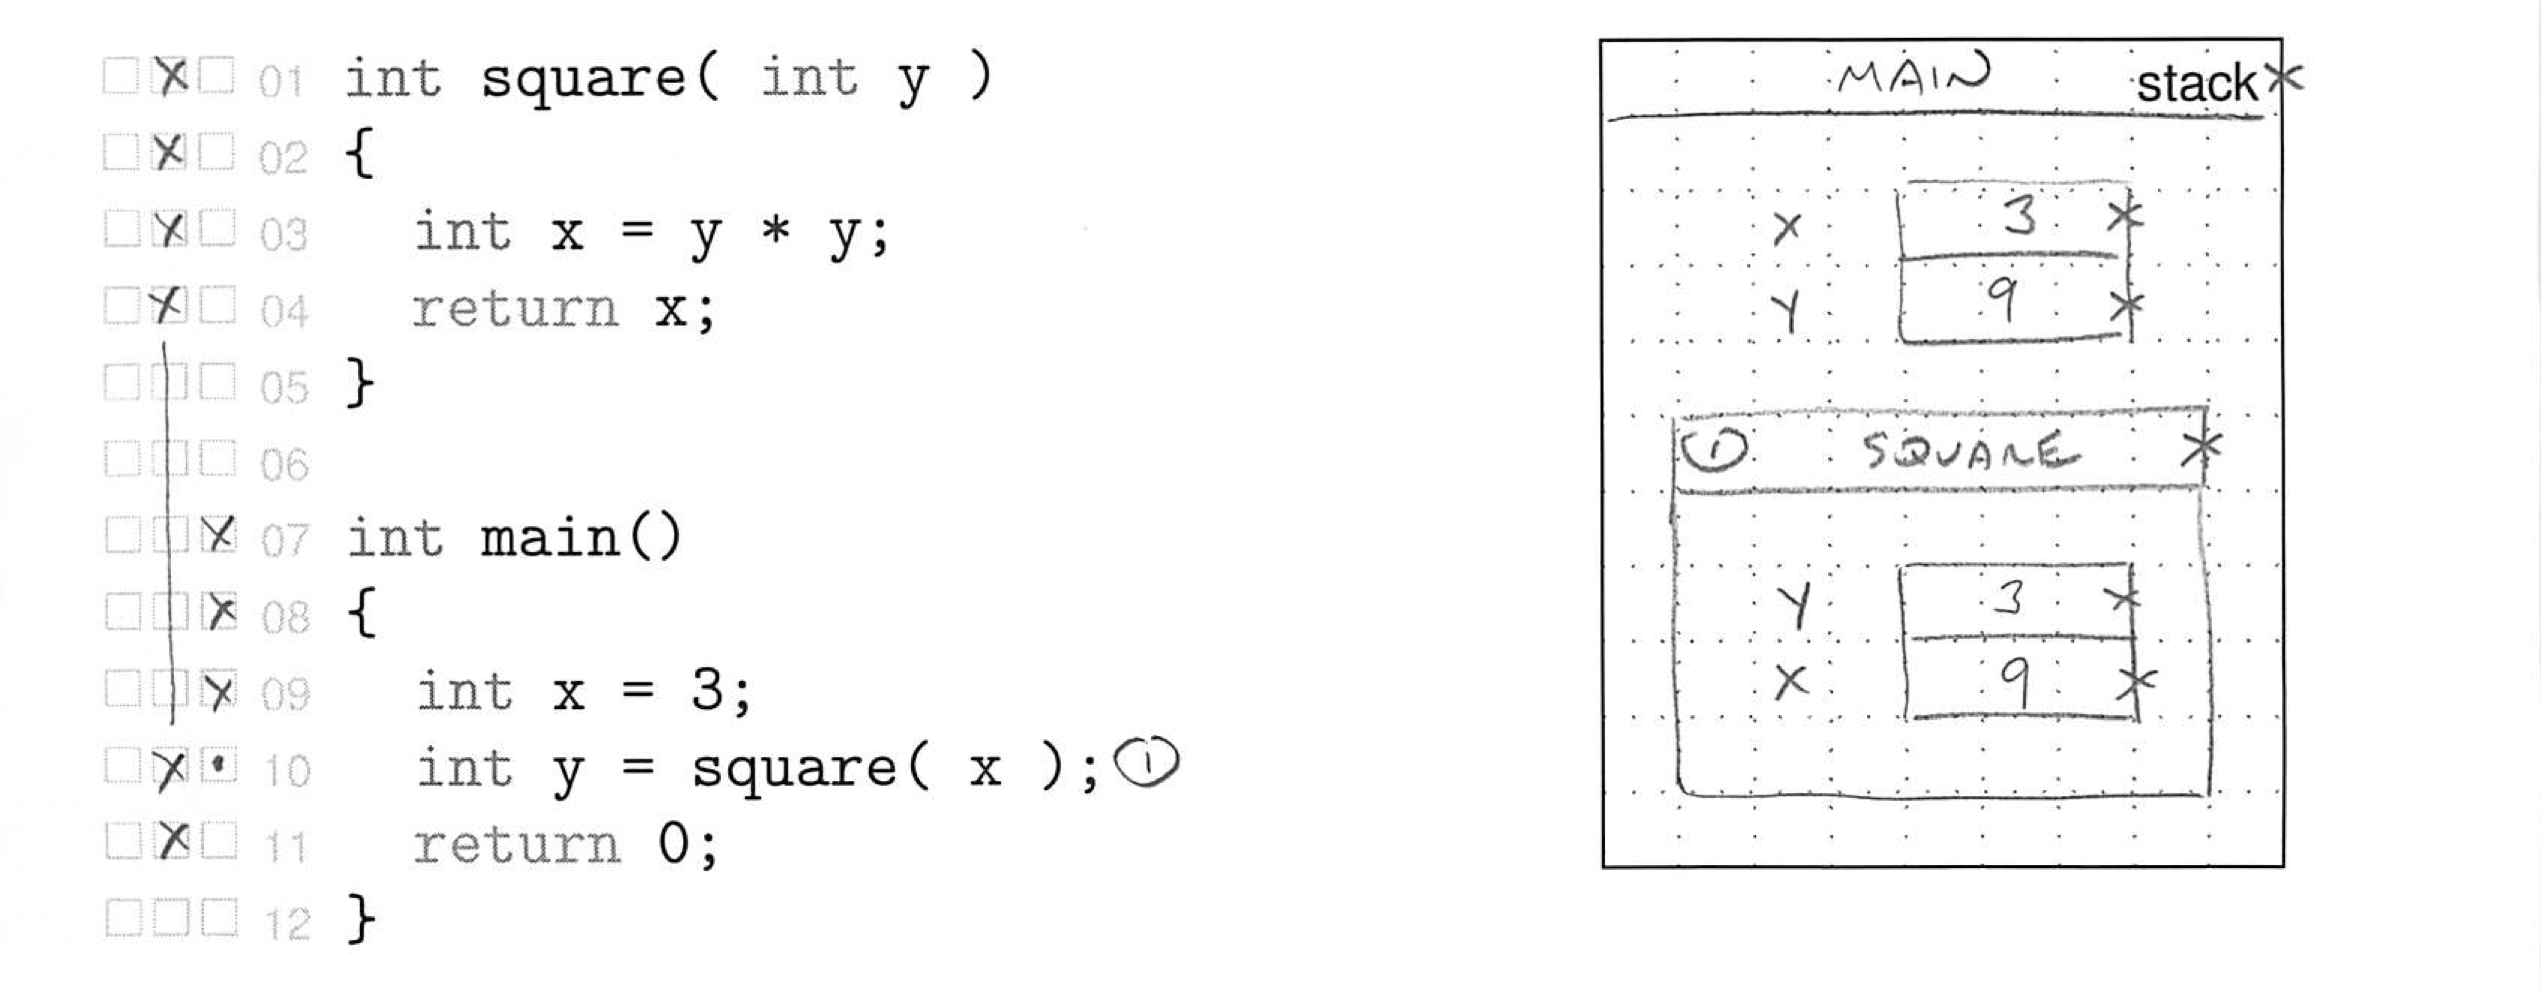 01 int square( int y )
02 {
03 int x = y * y;
04 return x;
05 }
06
07 int main()
08 {
09 int x = 3;
10 int y = square( x ); 1
11 return 0;
12 }
MAIN stack
X 3
Y 9
1 SQUARE
Y 3
X 9